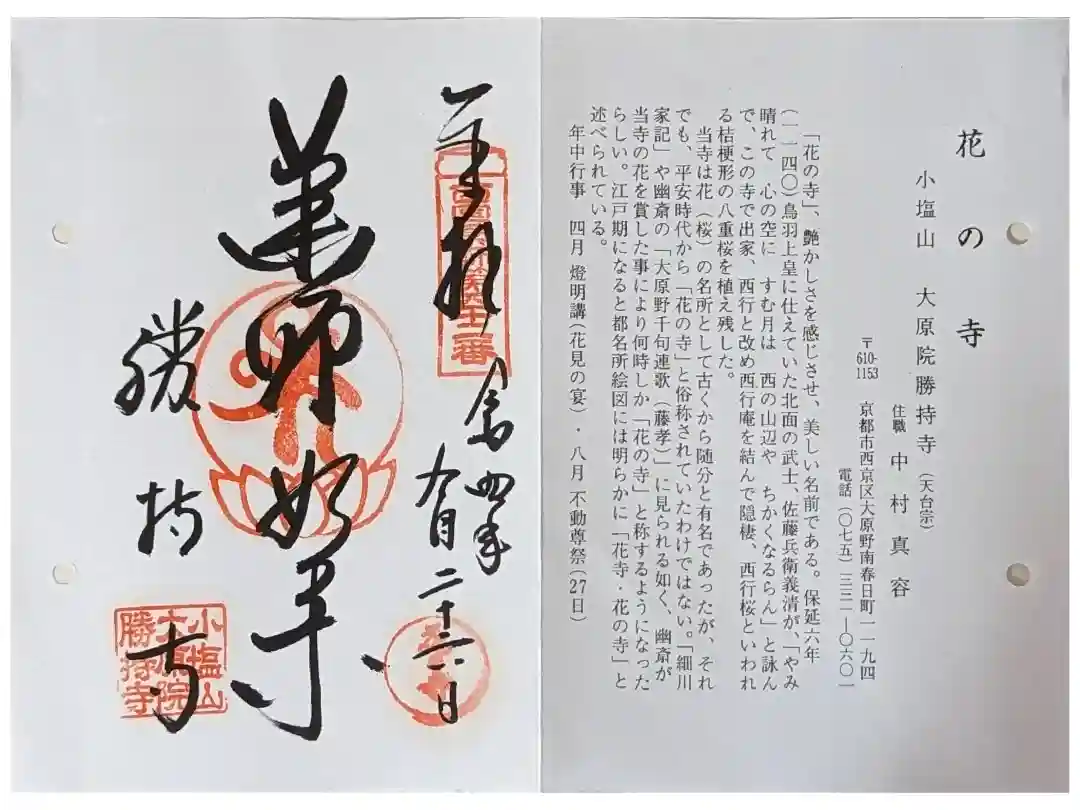 花の寺
小塩山 大原院勝持寺（天台宗）
住職 中村真容
〒610-1153 京都市西京区大原野南春日町一一九四
電話（〇七五）三三一―〇六〇一
「花の寺」、艶かしさを感じさせ、美しい名前である。保延六年
（一一四〇）鳥羽上皇に仕えていた北面の武士、佐藤兵衛義清が、「やみ
晴れて 心の空に すむ月は 西の山辺や ちかくなるらん」と詠ん
で、この寺で出家、西行と改め西行庵を結んで隠棲、西行桜といわれ
る桔梗形の八重桜を植え残した。
当寺は花（桜）の名所として古くから随分と有名であったが、それ
でも、平安時代から「花の寺」と俗称されていたわけではない。「細川
家記」や幽斎の「大原野千句連歌（藤孝）」に見られる如く、幽斎が
当寺の花を賞した事により何時しか「花の寺」と称するようになった
らしい。江戸期になると都名所絵図には明らかに「花寺・花の寺」と
述べられている。
年中行事 四月 燈明講（花見の宴）・八月 不動尊祭（27日）
奉拝
西国薬師第四十二番
令四年
九月二十三日
薬師如来
勝持寺
小塩山
大原院
勝持寺